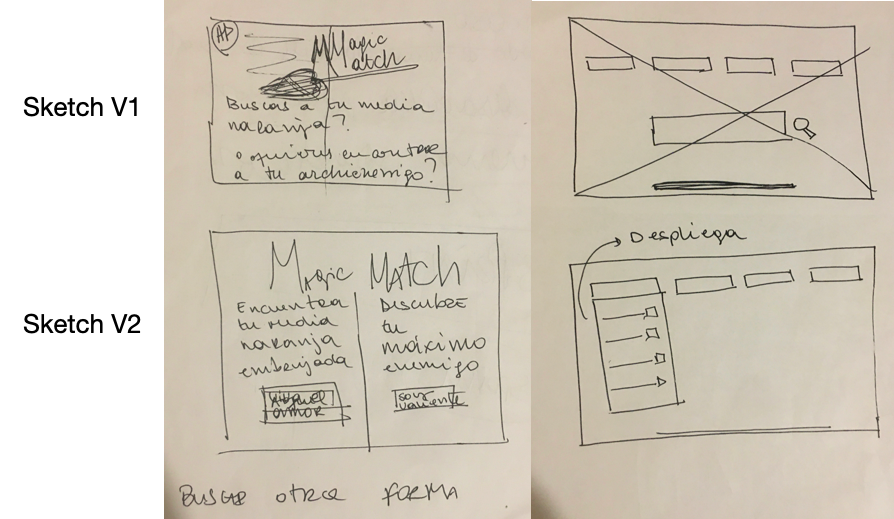 Sketch V1
HP
Magic
Match
Buscas a tu media
naranja?
o quieres encontrar
a tu archienemigo?
Sketch V2
Magic Match
Encuentra
tu media
naranja
embrujada
Descubre
tu
máximo
enemigo
amor
soy
valiente
Buscar otra forma
Despliega